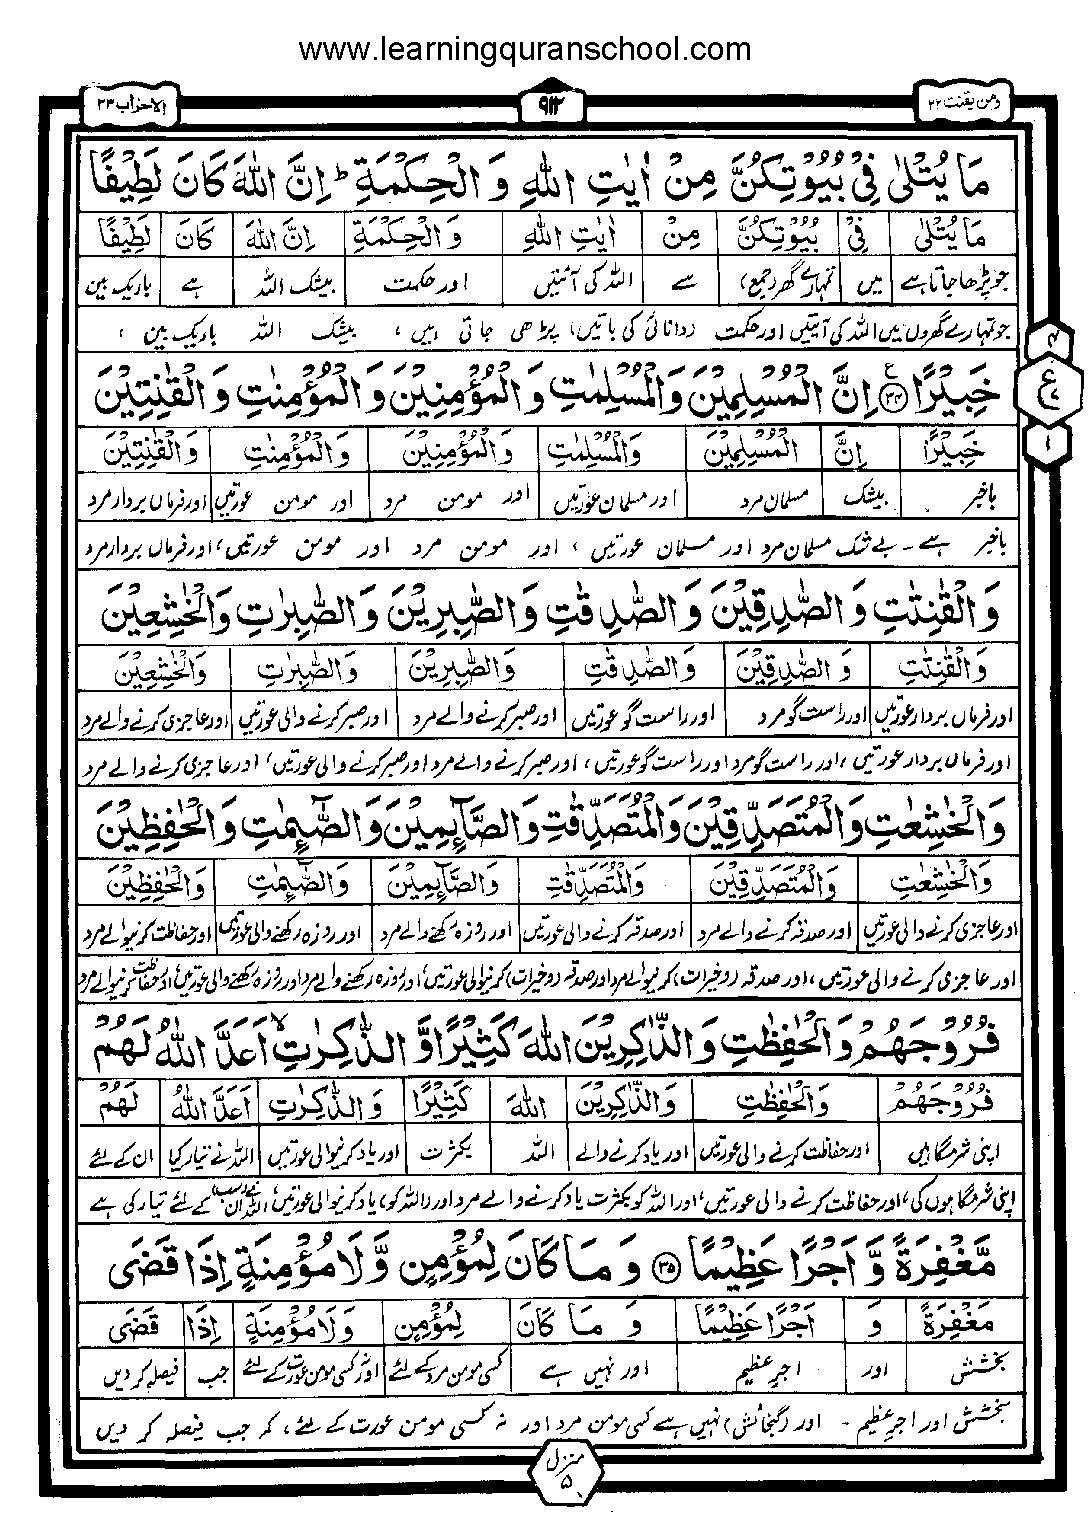 www.learningquranschool.com
ومن یقنت ۲۲
۹۱۲
الاحزاب ۳۳
مَا يُتْلٰى فِيْ بُيُوْتِكُنَّ مِنْ اٰيٰتِ اللّٰهِ وَ الْحِكْمَةِ ؕ اِنَّ اللّٰهَ كَانَ لَطِيْفًا
مَا يُتْلٰى فِيْ بُيُوْتِكُنَّ مِنْ اٰيٰتِ اللّٰهِ وَ الْحِكْمَةِ اِنَّ اللّٰهَ كَانَ لَطِيْفًا
جو پڑھا جاتا ہے میں تمہارے گھر (جمع) سے اللہ کی آئتیں اور حکمت بیشک اللہ ہے باریک بین
جو تمہارے گھروں میں اللہ کی آیتیں اور حکمت (دانائی کی باتیں) پڑھی جاتی ہیں، بیشک اللہ باریک بین،
خَبِيْرًا ﴿۳۴﴾ اِنَّ الْمُسْلِمِيْنَ وَالْمُسْلِمٰتِ وَ الْمُؤْمِنِيْنَ وَ الْمُؤْمِنٰتِ وَ الْقٰنِتِيْنَ
۴
ع
۱
خَبِيْرًا اِنَّ الْمُسْلِمِيْنَ وَالْمُسْلِمٰتِ وَ الْمُؤْمِنِيْنَ وَ الْمُؤْمِنٰتِ وَ الْقٰنِتِيْنَ
باخبر بیشک مسلمان مرد اور مسلمان عورتیں اور مومن مرد اور مومن عورتیں اور فرماں بردار مرد
باخبر ہے۔ بے شک مسلمان مرد اور مسلمان عورتیں، اور مومن مرد اور مومن عورتیں، اور فرماں بردار مرد
وَ الْقٰنِتٰتِ وَ الصّٰدِقِيْنَ وَ الصّٰدِقٰتِ وَ الصّٰبِرِيْنَ وَ الصّٰبِرٰتِ وَ الْخٰشِعِيْنَ
وَ الْقٰنِتٰتِ وَ الصّٰدِقِيْنَ وَ الصّٰدِقٰتِ وَ الصّٰبِرِيْنَ وَ الصّٰبِرٰتِ وَ الْخٰشِعِيْنَ
اور فرماں بردار عورتیں اور راست گو مرد اور راست گو عورتیں اور صبر کرنے والے مرد اور صبر کرنے والی عورتیں اور عاجزی کرنے والے مرد
اور فرماں بردار عورتیں، اور راست گو مرد اور راست گو عورتیں، اور صبر کرنے والے مرد اور صبر کرنے والی عورتیں، اور عاجزی کرنے والے مرد
وَ الْخٰشِعٰتِ وَ الْمُتَصَدِّقِيْنَ وَ الْمُتَصَدِّقٰتِ وَ الصَّآئِمِيْنَ وَ الصّٰٓئِمٰتِ وَ الْحٰفِظِيْنَ
وَ الْخٰشِعٰتِ وَ الْمُتَصَدِّقِيْنَ وَ الْمُتَصَدِّقٰتِ وَ الصَّآئِمِيْنَ وَ الصّٰٓئِمٰتِ وَ الْحٰفِظِيْنَ
اور عاجزی کرنے والی عورتیں اور صدقہ کرنے والے مرد اور صدقہ کرنے والی عورتیں اور روزہ رکھنے والے مرد اور روزہ رکھنے والی عورتیں اور حفاظت کرنیوالے مرد
اور عاجزی کرنے والی عورتیں، اور صدقہ (و خیرات) کرنیوالے مرد اور صدقہ (و خیرات) کرنیوالی عورتیں، اور روزہ رکھنے والے مرد اور روزہ رکھنے والی عورتیں، اور حفاظت کرنیوالے مرد
فُرُوْجَهُمْ وَ الْحٰفِظٰتِ وَ الذّٰكِرِيْنَ اللّٰهَ كَثِيْرًا وَّ الذّٰكِرٰتِ ۙ اَعَدَّ اللّٰهُ لَهُمْ
فُرُوْجَهُمْ وَ الْحٰفِظٰتِ وَ الذّٰكِرِيْنَ اللّٰهَ كَثِيْرًا وَ الذّٰكِرٰتِ اَعَدَّ اللّٰهُ لَهُمْ
اپنی شرمگاہیں اور حفاظت کرنے والی عورتیں اور یاد کرنے والے اللہ بکثرت اور یاد کرنیوالی عورتیں اللہ نے تیار کیا ان کے لئے
اپنی شرمگاہوں کی، اور حفاظت کرنے والی عورتیں، اور اللہ کو بکثرت یاد کرنے والے مرد اور (اللہ کو) یاد کرنیوالی عورتیں، اللہ نے ان سب کے لئے تیار کی ہے
مَّغْفِرَةً وَّ اَجْرًا عَظِيْمًا ﴿۳۵﴾ وَ مَا كَانَ لِمُؤْمِنٍ وَّ لَا مُؤْمِنَةٍ اِذَا قَضَى
مَغْفِرَةً وَ اَجْرًا عَظِيْمًا وَ مَا كَانَ لِمُؤْمِنٍ وَ لَا مُؤْمِنَةٍ اِذَا قَضَى
بخشش اور اجرِ عظیم اور نہیں ہے کسی مومن مرد کے لئے اور نہ کسی مومن عورت کے لئے جب فیصلہ کر دیں
بخشش اور اجرِ عظیم۔ اور (گنجائش) نہیں ہے کسی مومن مرد اور نہ کسی مومن عورت کے لئے، کہ جب فیصلہ کر دیں
منزل ۵